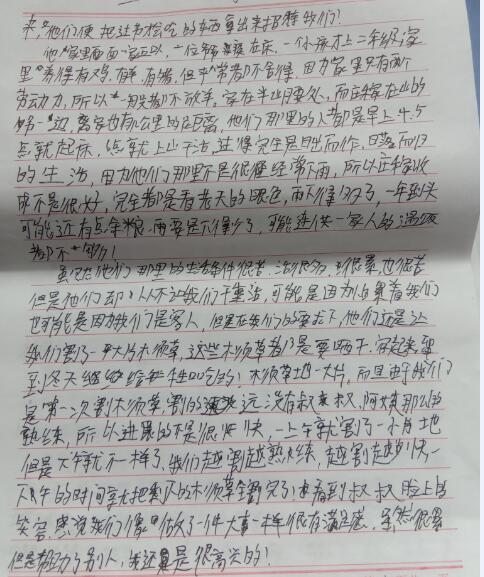 来,他们便把过节松吃的东西拿出来招待我们!
他家里面四口人,一位躺在床,一个孩子上二年级,家
里养得有鸡、有羊、有猪,但平常都不舍得,因为家里只有两个
劳动力,所以一般都不放羊。家在半山腰处,而庄稼在山的
另一边,离家也有公里的距离,他们那里的人都是早上4、5
点就起床,点就上山干活,过得完全是日出而作,日落而归
的生活,因为他们那里不是很经常下雨,所以庄稼收
成不是很好,完全都是看老天的眼色,雨下得多了,一年到头
可能还有点余粮,雨要是下得少了,可能连供一家人的温饱
都不够!
虽然他们那里的生活条件很苦,活很多,很累也很苦
但是他们却从不让我们干重活,可能是因为怕累着我们
也可能是因为我们是客人,但是在我们的要求下,他们还是让
我们割了一大片木须草,这些木须草都是要晒干,存起来留
到冬天给牲口吃的!木须草地一大片,而且由于我们
是第一次割木须草,割的速度远没有叔叔、阿姨那么的
熟练,所以进展的不是很快,一上午就割了一小片地
但是下午就不一样了,我们越割越熟练,越割越快,一
下午的时间就把剩下的木须草全割完了!看到叔叔脸上的
笑容,感觉我们像是做了一件大事一样很有满足感,虽然很累
但是帮助了别人,我还是很高兴的!